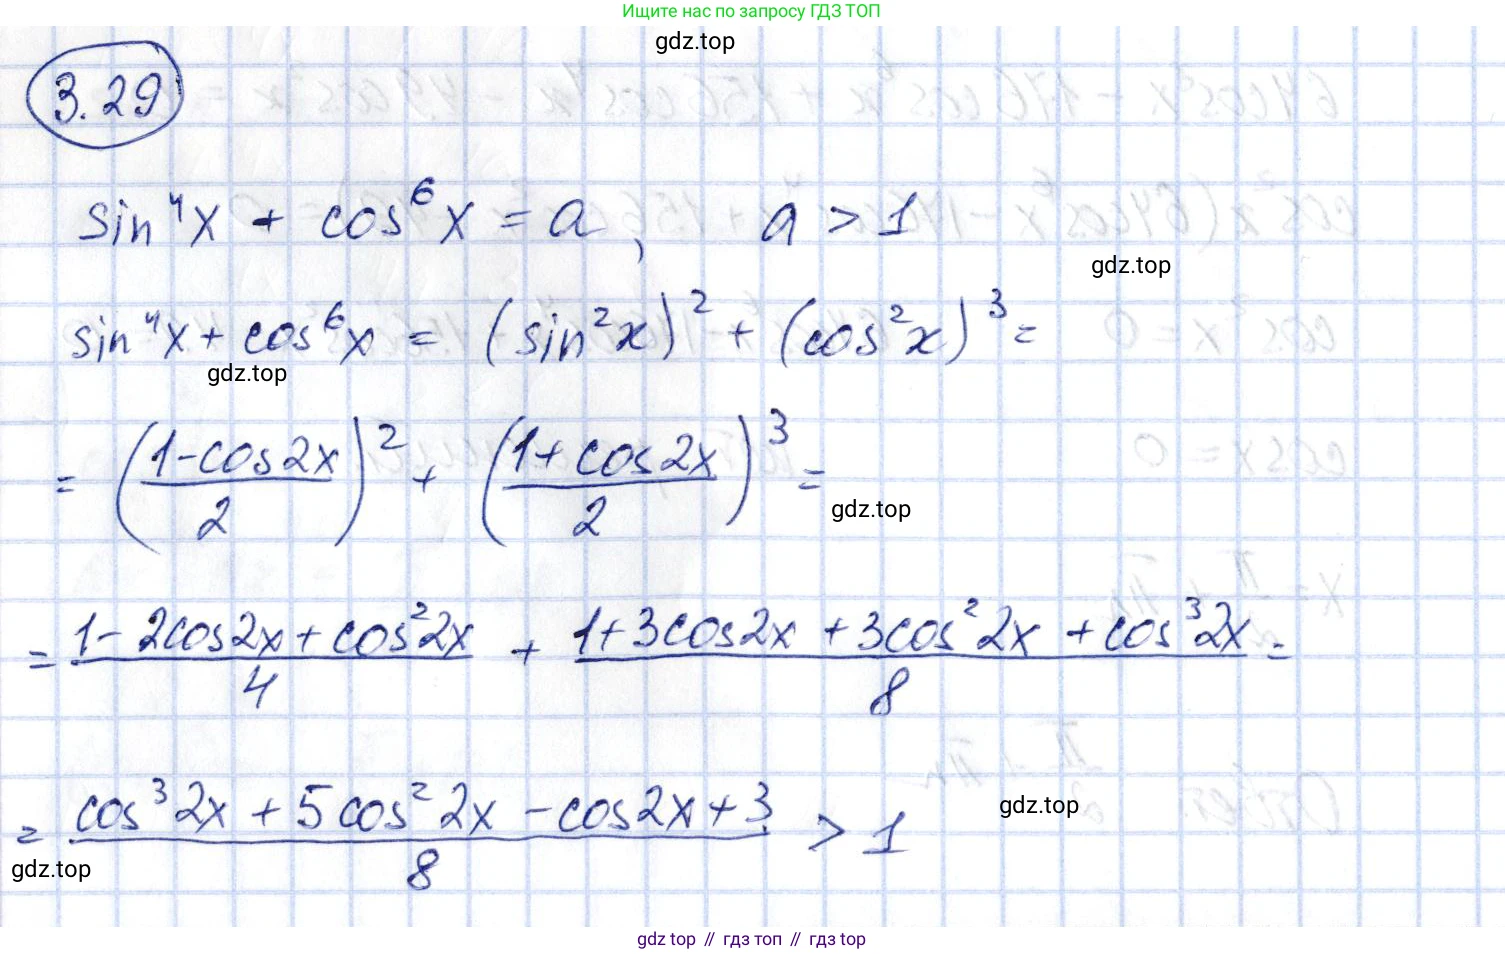 Ищите нас по запросу ГДЗ ТОП
gdz.top
3.29
sin⁴x + cos⁶x = a, a > 1
gdz.top
sin⁴x + cos⁶x = (sin²x)² + (cos²x)³ =
gdz.top
= ((1-cos2x)/2)² + ((1+cos2x)/2)³ =
gdz.top
= (1-2cos2x+cos²2x)/4 + (1+3cos2x+3cos²2x+cos³2x)/8 =
gdz.top
= (cos³2x+5cos²2x-cos2x+3)/8 > 1
gdz.top
gdz top // гдз топ // гдз top